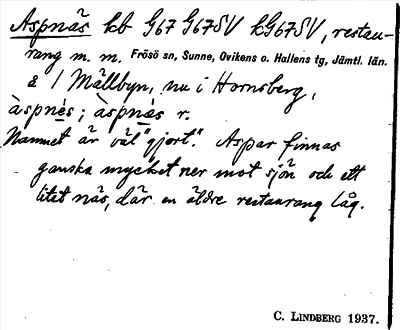 Aspnäs kb G67 G67SV kG67SV, restau-
rang m. m. Frösö sn, Sunne, Ovikens o. Hallens tg, Jämtl. län.
å 1 Mällbyn, nu i Hornsberg,
àspnès; àspnàs r.
Namnet är väl "gjort". Aspar finnas
ganska mycket ner mot sjön och ett
litet näs, där en äldre restaurang låg.
C. LINDBERG 1937.